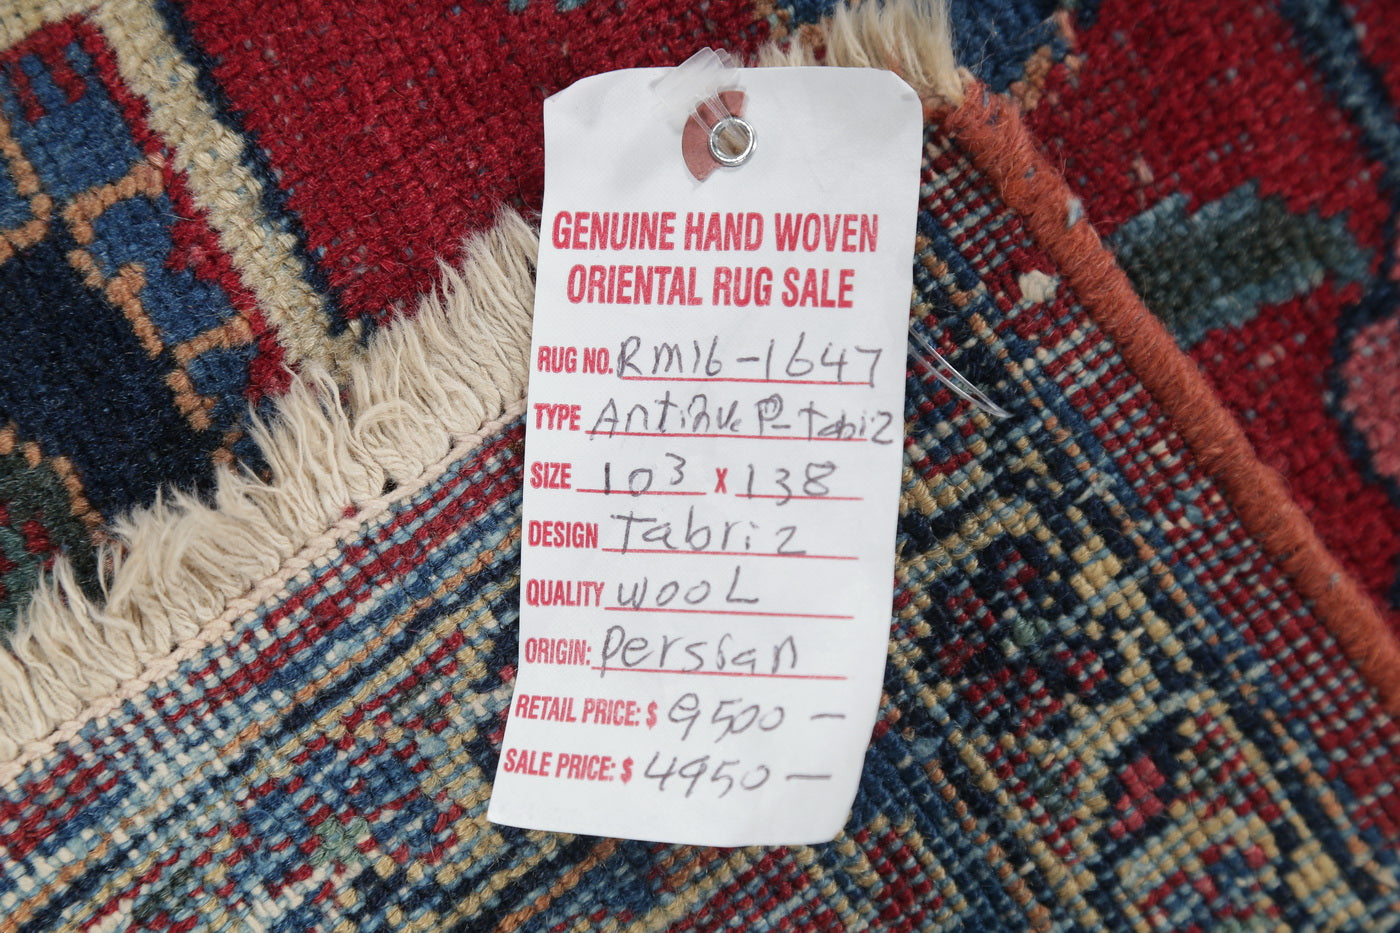 GENUINE HAND WOVEN
ORIENTAL RUG SALE
RUG NO. RM16-1647
TYPE Antique P-Tabriz
SIZE 10³ x 138
DESIGN Tabriz
QUALITY WOOL
ORIGIN: Persian
RETAIL PRICE: $ 9500 —
SALE PRICE: $ 4950 —